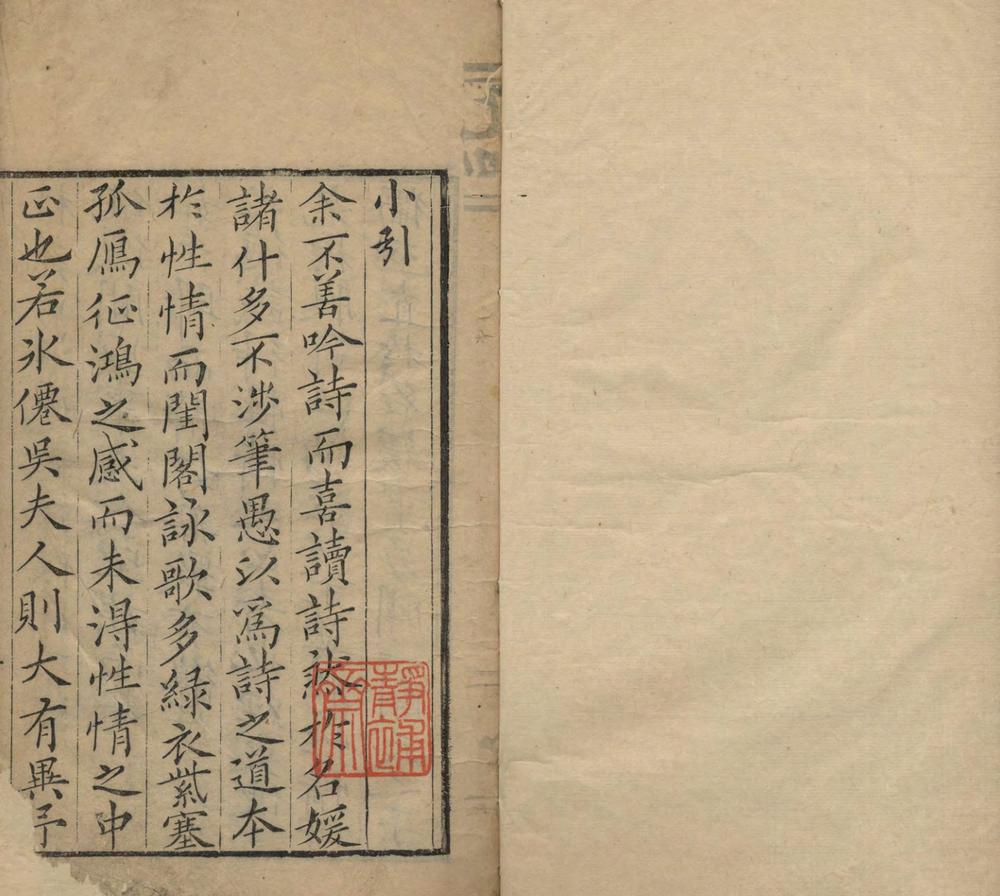 小引
余不善吟詩而喜讀詩然於名媛
諸什多不涉筆愚以為詩之道本
於性情而閨閣詠歌多綠衣紫塞
孤鴈征鴻之感而未得性情之中
正也若氷僊吳夫人則大有異予